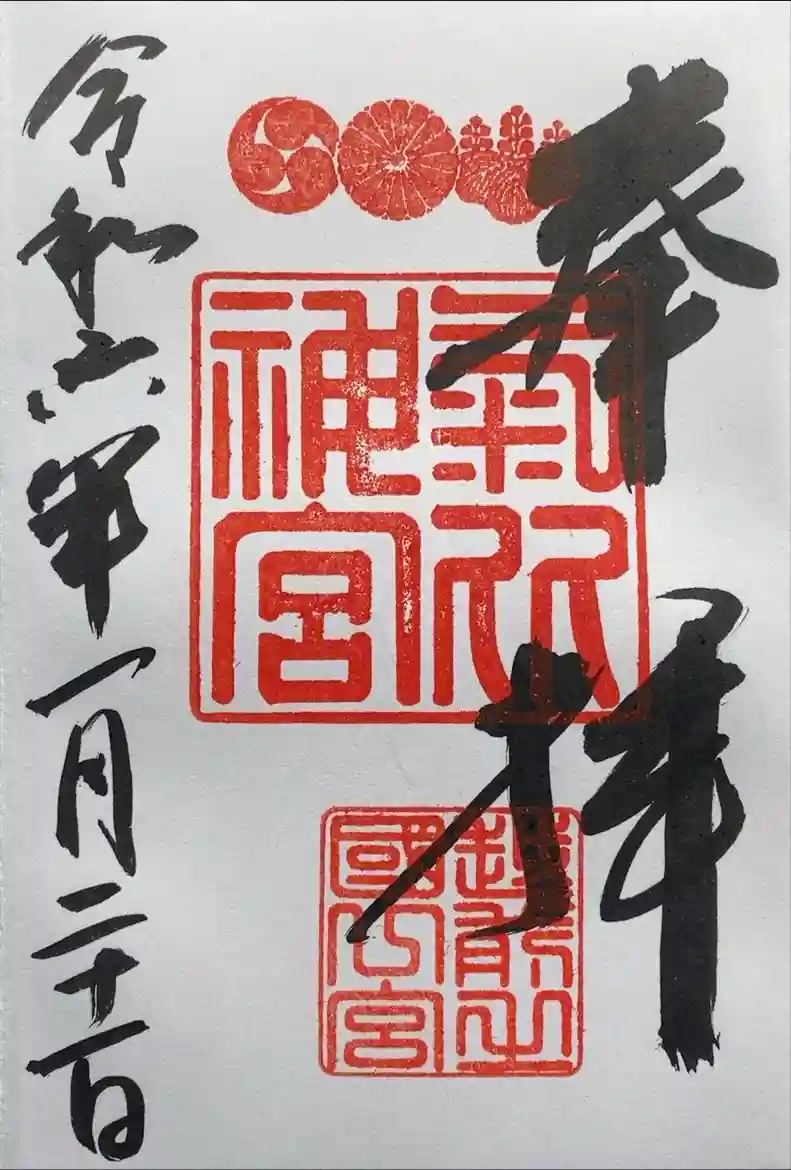 奉拝
氣比
神宮
越前之
國
宮
令和六年一月二十一日